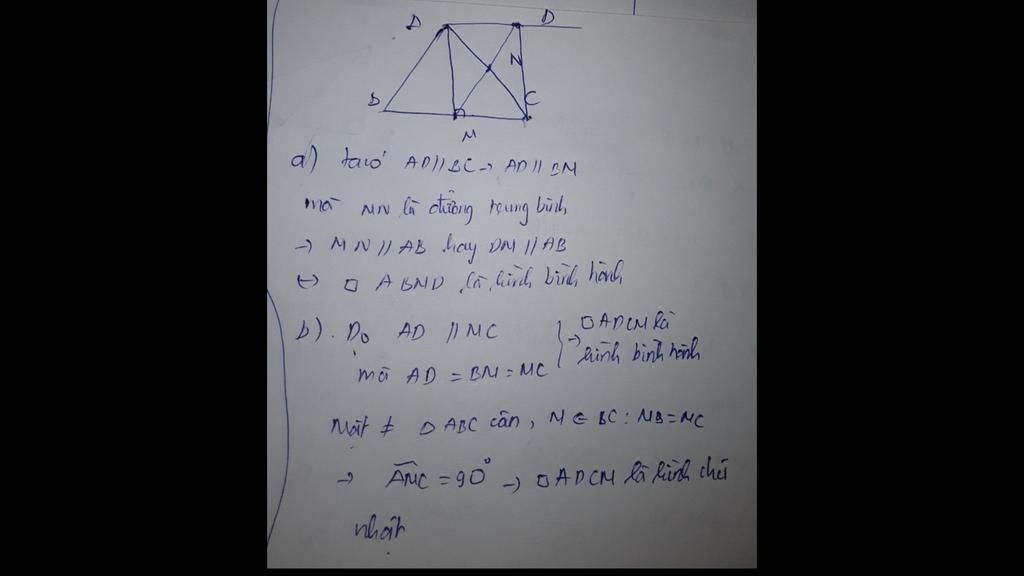 D D
N
D C
M
a) ta có AD//BC → AD//BM
mà MN là đường trung bình
→ MN//AB hay DM//AB
↔ □ ABMD là hình bình hành
b). Do AD // MC } → □ADCM là
mà AD = BM = MC hình bình hành
Mặt ≠ Δ ABC cân, M ∈ BC : MB = MC
→ AMC = 90° → □ADCM là hình chữ
nhật